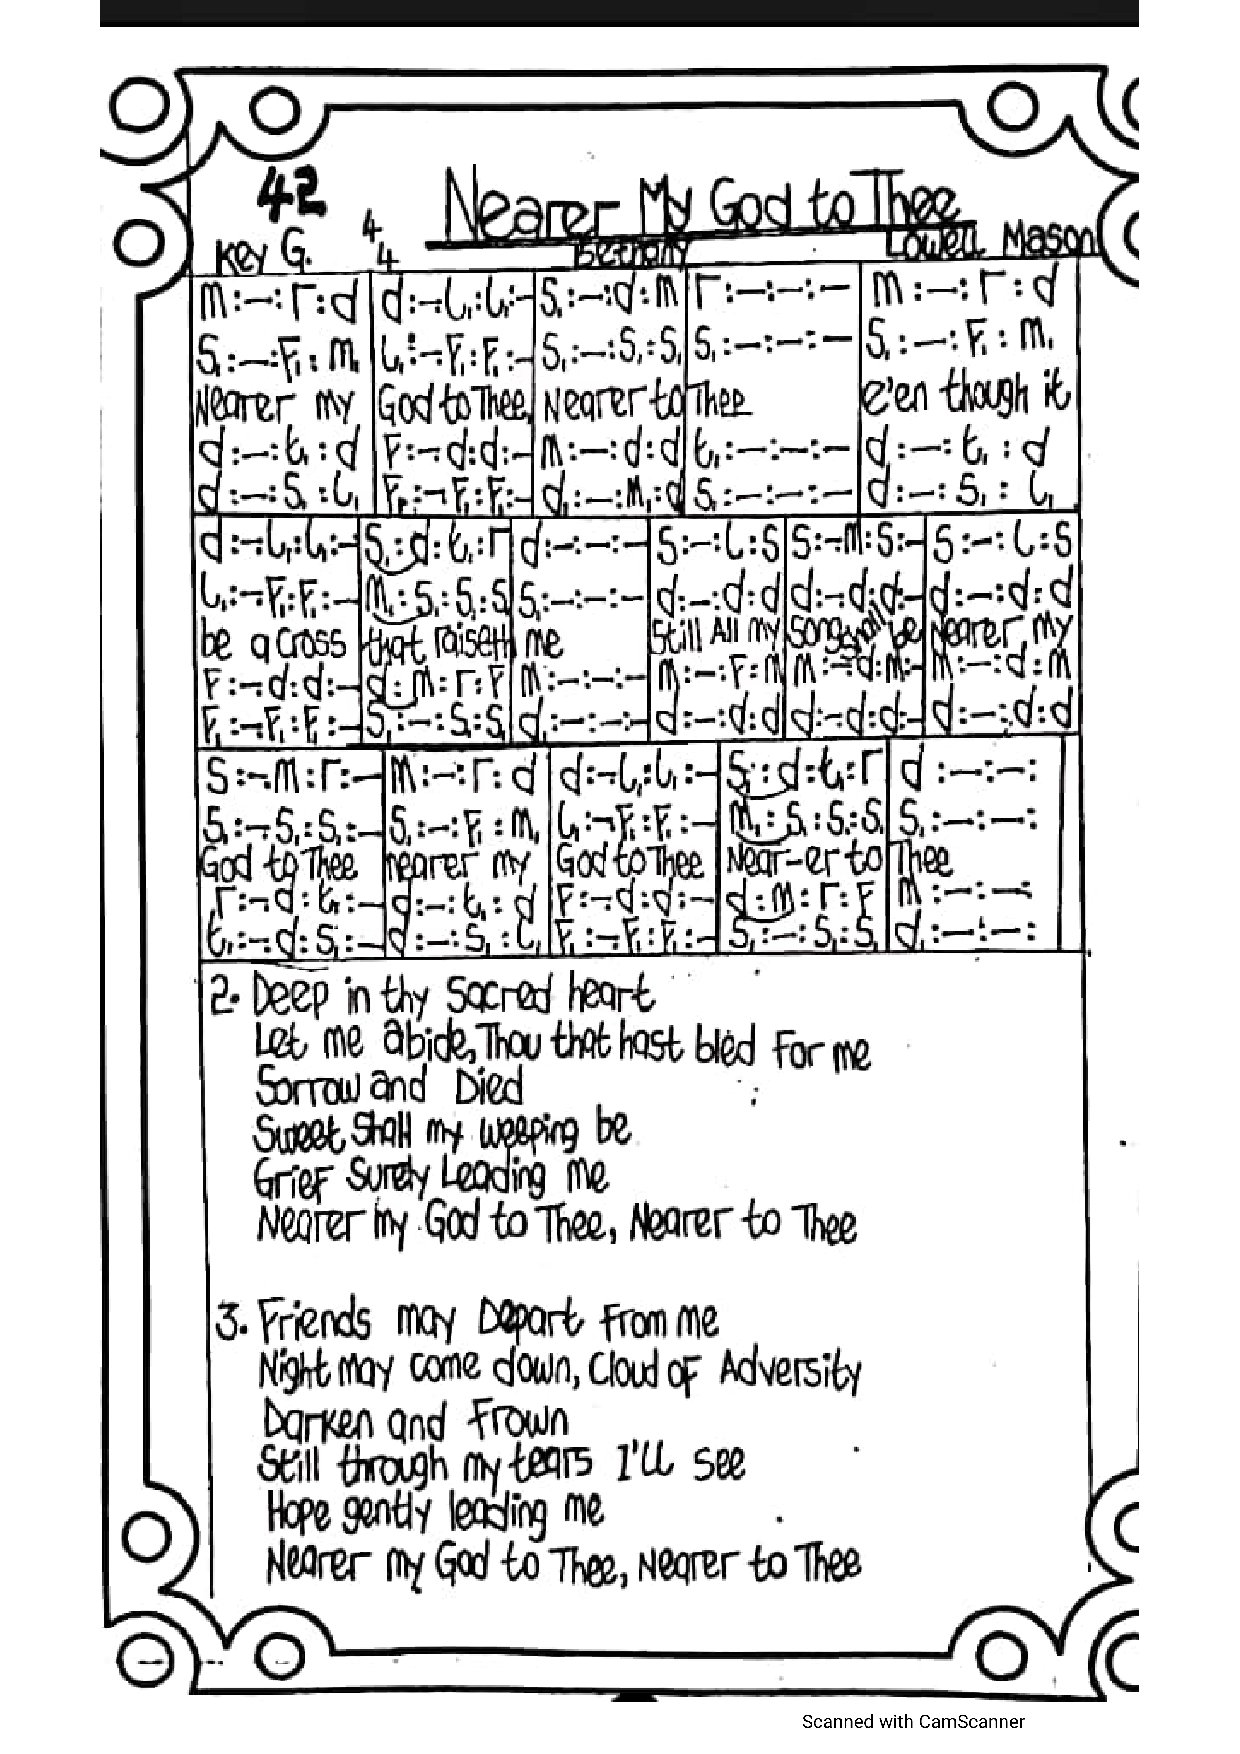 42
Nearer My God to Thee
Key G. 4/4 Bethany Lowell Mason
m:—:r:d | d:—.l₁:l₁:— | s₁:—:d:m | r:—:—:— | m:—:r:d
s₁:—:f₁:m₁ | l₁:—.f₁:f₁:— | s₁:—:s₁:s₁ | s₁:—:—:— | s₁:—:f₁:m₁
Nearer my | God to Thee, | Nearer to | Thee | e'en though it
d:—:t₁:d | f:—.d:d:— | m:—:d:d | t₁:—:—:— | d:—:t₁:d
d:—:s₁:l₁ | f₁:—.f₁:f₁:— | d₁:—:m₁:d | s₁:—:—:— | d:—:s₁:l₁
d:—.l₁:l₁:— | s₁:d:t₁:r | d:—:—:— | s:—:l:s | s:—.m:s:— | s:—:l:s
l₁:—.f₁:f₁:— | m₁:s₁:s₁:s₁ | s₁:—:—:— | d:—:d:d | d:—.d:d:— | d:—:d:d
be a cross | that raiseth | me | Still All my | song shall be | Nearer, my
f:—.d:d:— | d:m:r:f | m:—:—:— | m:—:f:m | m:—.d:m:— | m:—:d:m
f₁:—.f₁:f₁:— | s₁:—:s₁:s₁ | d₁:—:—:— | d:—:d:d | d:—.d:d:— | d:—:d:d
s:—.m:r:— | m:—:r:d | d:—.l₁:l₁:— | s₁:d:t₁:r | d:—:—:
s₁:—.s₁:s₁:— | s₁:—:f₁:m₁ | l₁:—.f₁:f₁:— | m₁:s₁:s₁:s₁ | s₁:—:—:
God to Thee | nearer my | God to Thee | Near-er to | Thee
r:—.d:t₁:— | d:—:t₁:d | f:—.d:d:— | d:m:r:f | m:—:—:
t₁:—.d:s₁:— | d:—:s₁:l₁ | f₁:—.f₁:f₁:— | s₁:—:s₁:s₁ | d₁:—:—:
2. Deep in thy Sacred heart
Let me abide, Thou that hast bled for me
Sorrow and Died
Sweet Shall my weeping be
Grief Surely Leading me
Nearer my God to Thee, Nearer to Thee
3. Friends may Depart from me
Night may come down, Cloud of Adversity
Darken and frown
Still through my tears I'll see
Hope gently leading me
Nearer my God to Thee, Nearer to Thee
Scanned with CamScanner